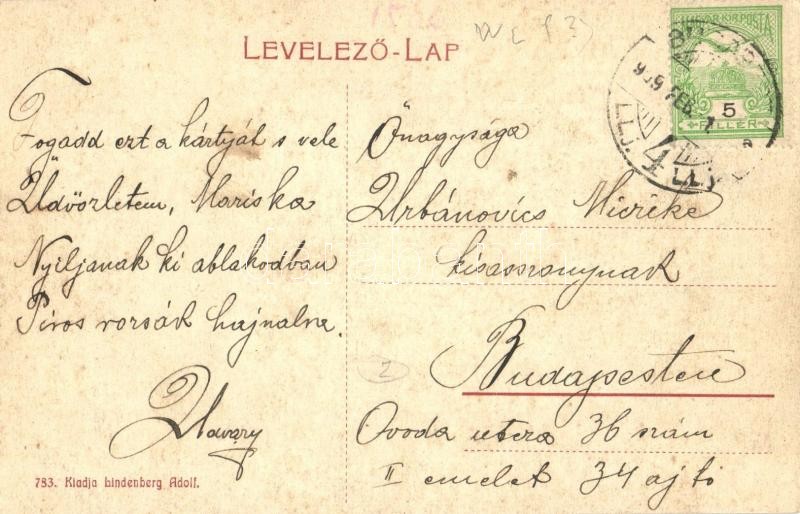 LEVELEZŐ-LAP
MAGYAR KIR. POSTA
5
FILLER
909 FEB. 7.
4
Fogadd ezt a kártyát s vele
Üdvözletem, Mariska
Nyiljanak ki ablakodban
Piros rozsák hajnalra.
783. Kiadja Lindenberg Adolf.
Önagysága
Urbánovics Miczike
kisasszonynak
Budapesten
Ovoda utcza 36 szám
II emelet 34 ajtó